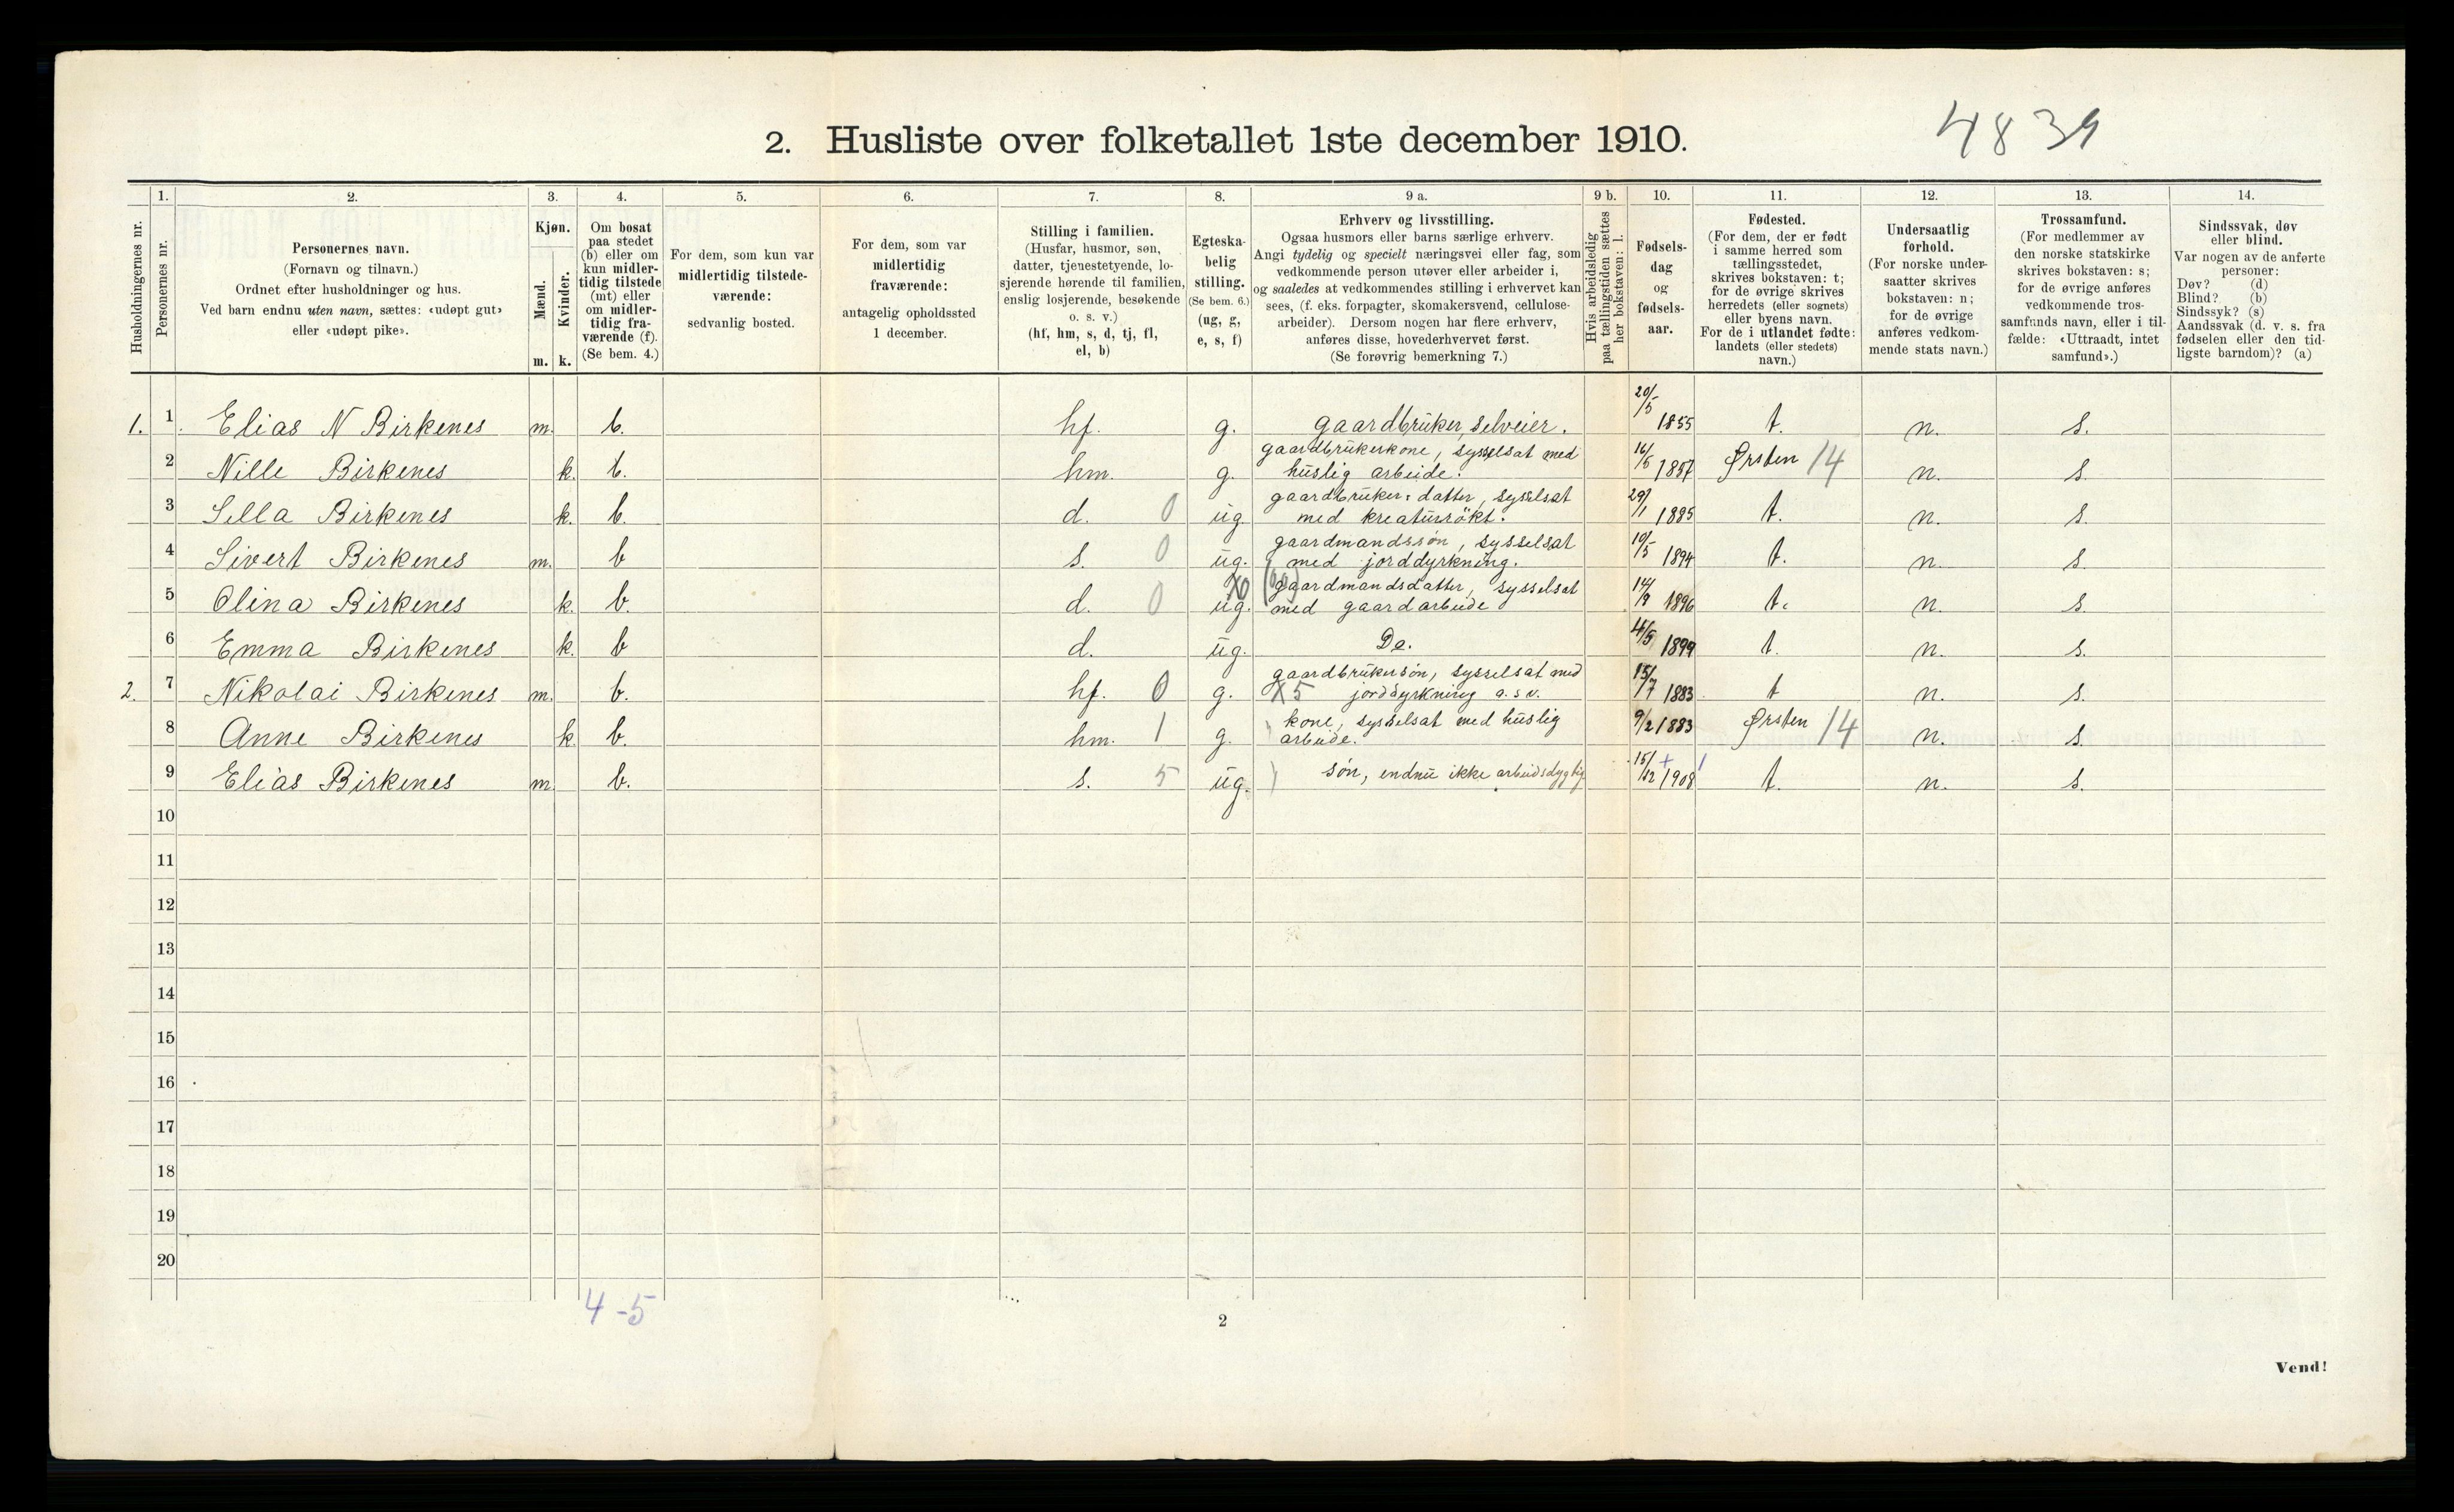 4839
2. Husliste over folketallet 1ste december 1910.
Husholdningernes nr.
1.
Personernes nr.
2.
Personernes navn.
(Fornavn og tilnavn.)
Ordnet efter husholdninger og hus.
Ved barn endnu uten navn, sættes: «udøpt gut»
eller «udøpt pike».
3.
Kjøn.
Mænd.
Kvinder.
m. k.
4.
Om bosat
paa stedet
(b) eller om
kun midler-
tidig tilstede
(mt) eller
om midler-
tidig fra-
værende (f).
(Se bem. 4.)
5.
For dem, som kun var
midlertidig tilstede-
værende:
sedvanlig bosted.
6.
For dem, som var
midlertidig
fraværende:
antagelig opholdssted
1 december.
7.
Stilling i familien.
(Husfar, husmor, søn,
datter, tjenestetyende, lo-
sjerende hørende til familien,
enslig losjerende, besøkende
o. s. v.)
(hf, hm, s, d, tj, fl,
el, b)
8.
Egteska-
belig
stilling.
(Se bem. 6.)
(ug, g,
e, s, f)
9 a.
Erhverv og livsstilling.
Ogsaa husmors eller barns særlige erhverv.
Angi tydelig og specielt næringsvei eller fag, som
vedkommende person utøver eller arbeider i,
og saaledes at vedkommendes stilling i erhvervet kan
sees, (f. eks. forpagter, skomakersvend, cellulose-
arbeider). Dersom nogen har flere erhverv,
anføres disse, hovederhvervet først.
(Se forøvrig bemerkning 7.)
9 b.
Hvis arbeidsledig
paa tællingstiden sættes
her bokstaven: l.
10.
Fødsels-
dag
og
fødsels-
aar.
11.
Fødested.
(For dem, der er født
i samme herred som
tællingsstedet,
skrives bokstaven: t;
for de øvrige skrives
herredets (eller sognets)
eller byens navn.
For de i utlandet fødte:
landets (eller stedets)
navn.)
12.
Undersaatlig
forhold.
(For norske under-
saatter skrives
bokstaven: n;
for de øvrige
anføres vedkom-
mende stats navn.)
13.
Trossamfund.
(For medlemmer av
den norske statskirke
skrives bokstaven: s;
for de øvrige anføres
vedkommende tros-
samfunds navn, eller i til-
fælde: «Uttraadt, intet
samfund».)
14.
Sindssvak, døv
eller blind.
Var nogen av de anførte
personer:
Døv? (d)
Blind? (b)
Sindssyk? (s)
Aandssvak (d. v. s. fra
fødselen eller den tid-
ligste barndom)? (a)
1. 1 Elias N Birkenes m. b. hf. g. gaardbruker, selveier. 20/5 1855 t. n. s.
2 Nille Birkenes k. b. hm. g. gaardbrukerkone, sysselsat med
huslig arbeide. 16/5 1857 Ørsten 14 n. s.
3 Sella Birkenes k. b. d. 0 ug. gaardbruker: datter, sysselsat
med kreaturrökt. 29/1 1885 t. n. s.
4 Sivert Birkenes m. b s. 0 ug. gaardmandssøn, sysselsat
med jorddyrkning. 10/5 1894 t. n. s.
5 Olina Birkenes k. b. d. 0 ug. gaardmandsdatter, sysselsat
med gaardarbeide 14/9 1896 t. n. s.
6 Emma Birkenes k. b d. ug. Do. 4/5 1899 t. n. s.
2. 7 Nikolai Birkenes m. b. hf. 0 g. gaardbrukersøn, sysselsat med
X5 jorddyrkning o.s.v. 15/7 1883 t n. s.
8 Anne Birkenes k. b. hm. 1 g. kone, sysselsat med huslig
arbeide. 9/2 1883 Ørsten 14 n. s.
9 Elias Birkenes m. b. s. 5 ug. søn, endnu ikke arbeidsdygtig 15/12 1908 t. n. s.
10
11
12
13
14
15
16
17
18
19
20
4-5
2
Vend!